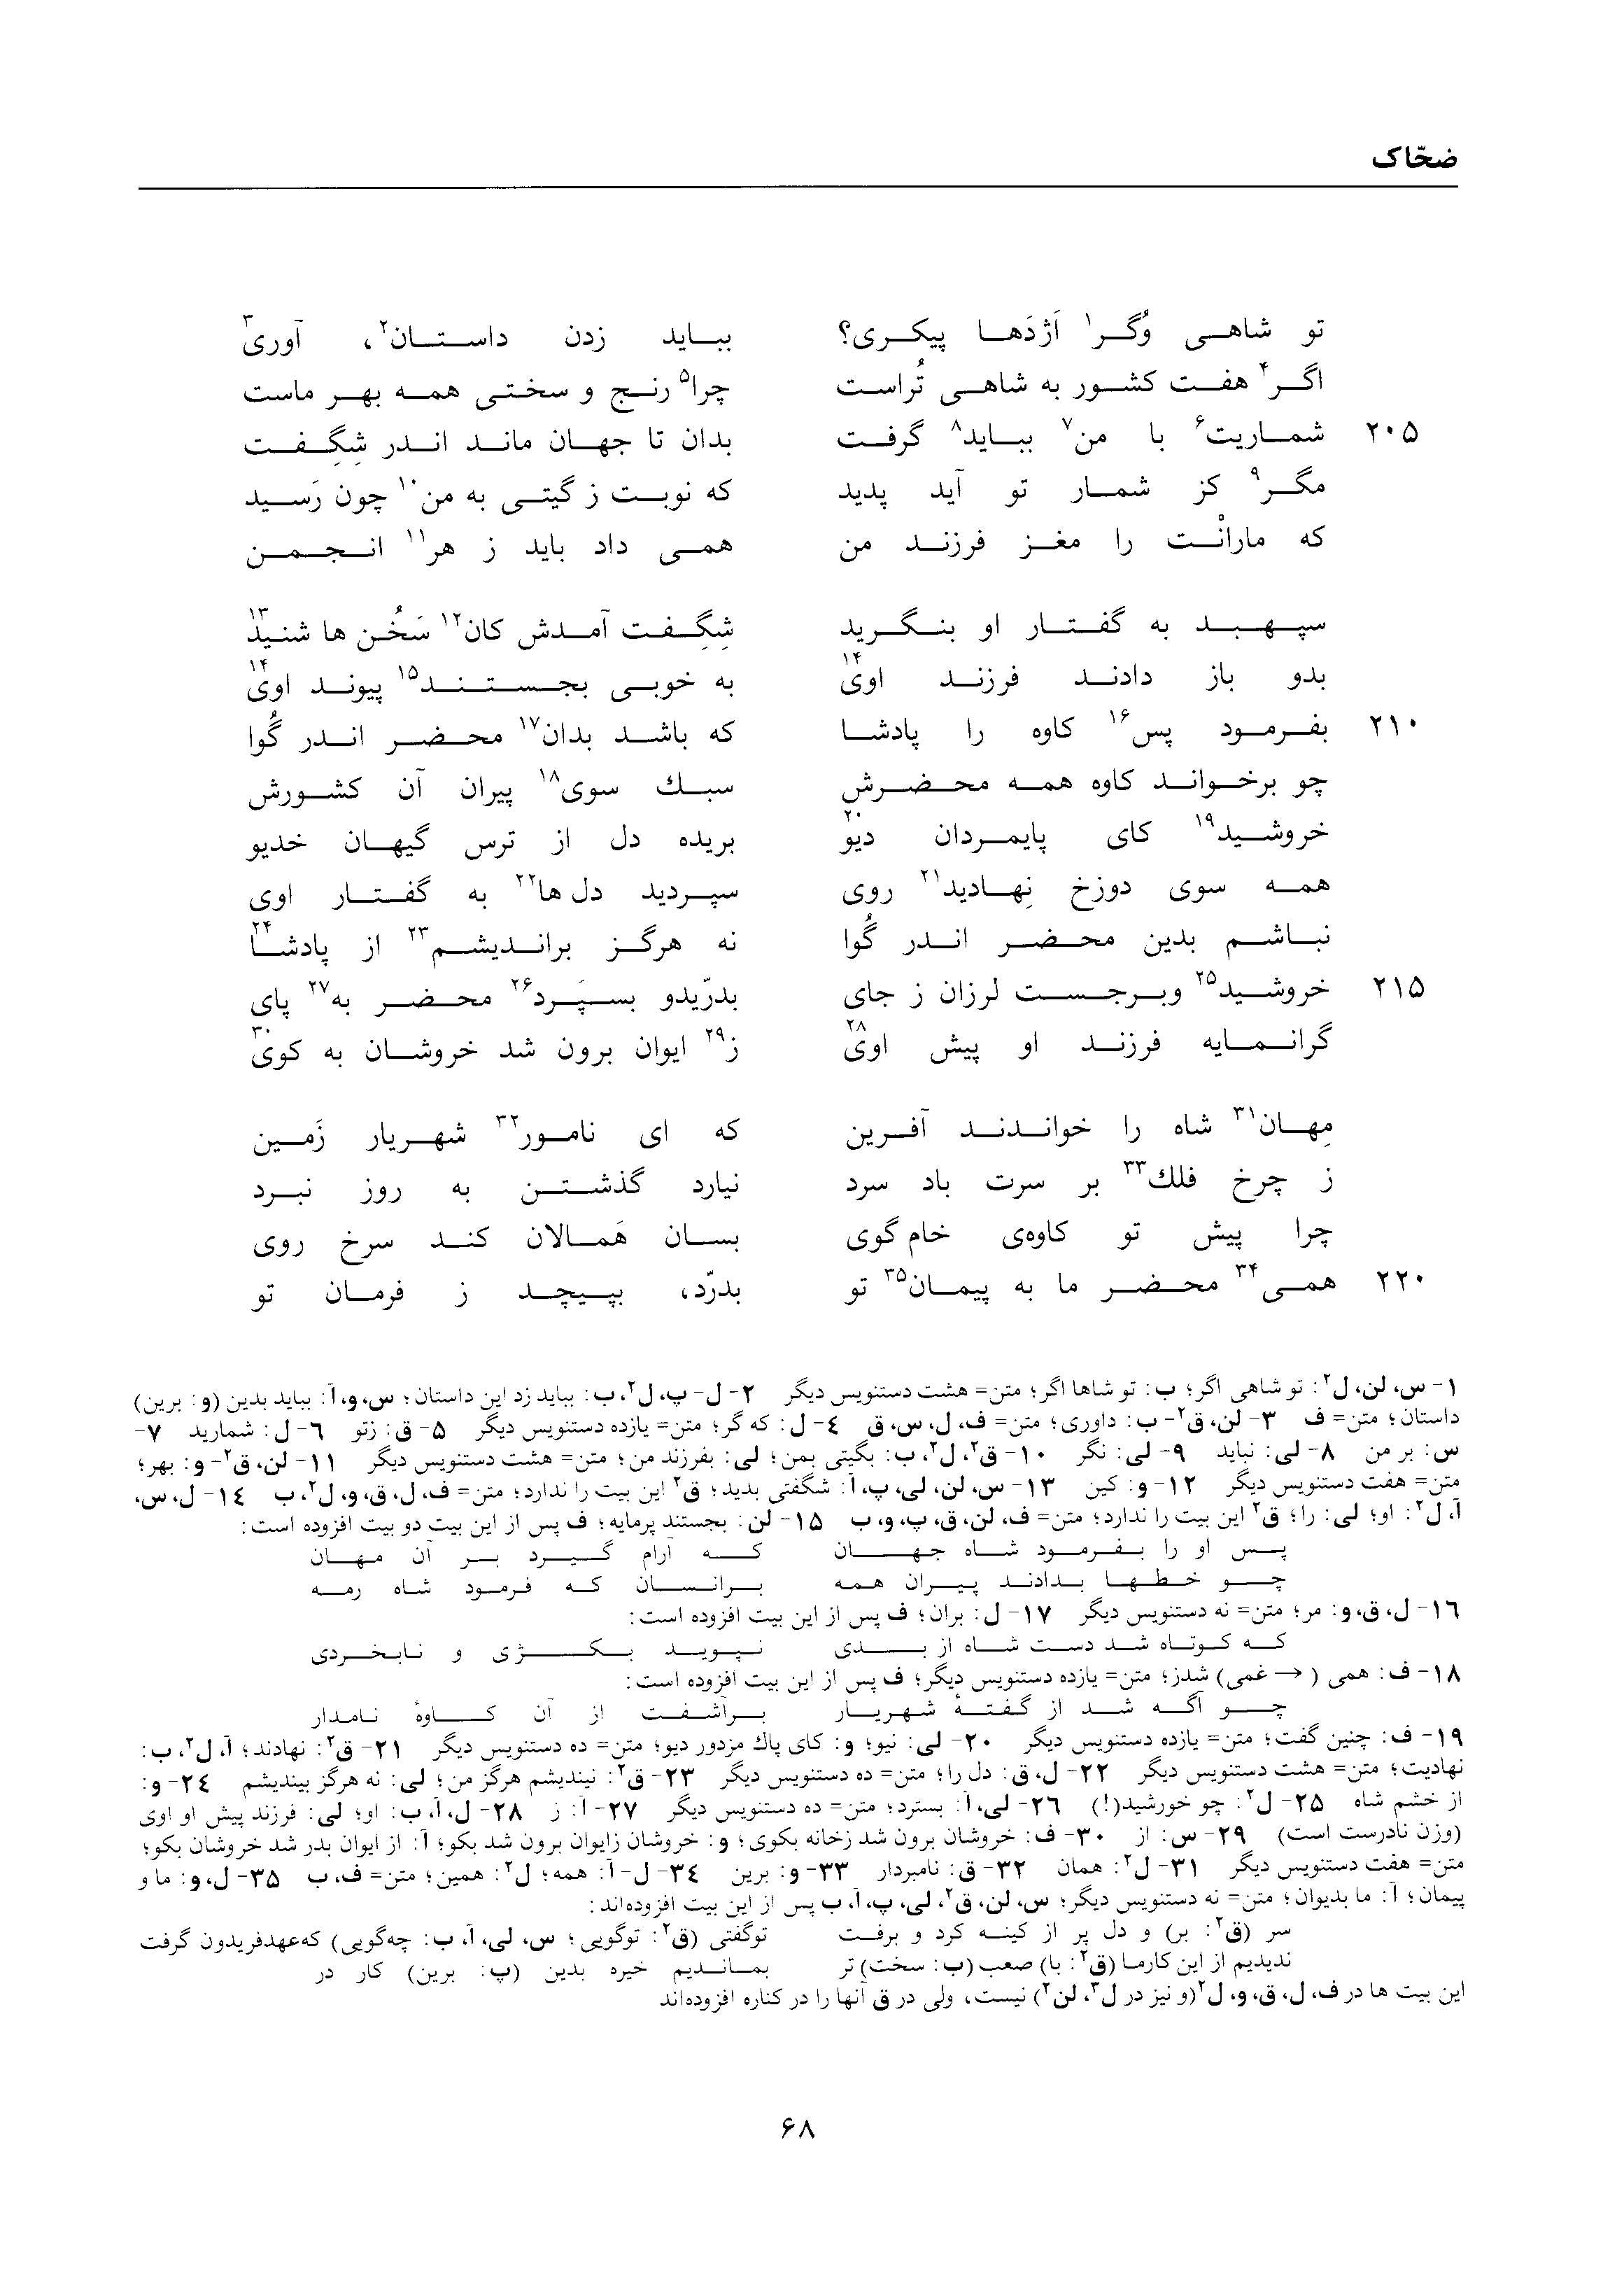 ضحّاک
تو شاهی وُگر۱ اَژدَها پیکری؟ بباید زدن داستان۲، آوری۳
اگر۴ هفت کشور به شاهی تُراست چرا۵ رنج و سختی همه بهر ماست
۲۰۵ شماریت۶ با من۷ بباید۸ گرفت بدان تا جهان ماند اندر شِگِفت
مگر۹ کز شمار تو آید پدید که نوبت ز گیتی به من۱۰ چون رَسید
که مارانْت را مغز فرزند من همی داد باید ز هر۱۱ انجمن
سپهبد به گفتار او بنگرید شِگِفت آمدش کان۱۲ سَخُن ها شنید۱۳
بدو باز دادند فرزند اوی۱۴ به خوبی بجستند۱۵ پیوند اوی۱۴
۲۱۰ بفرمود پس۱۶ کاوه را پادشا که باشد بدان۱۷ محضر اندر گُوا
چو برخواند کاوه همه محضرش سبك سوی۱۸ پیران آن کشورش
خروشید۱۹ کای پایمردان دیو۲۰ بریده دل از ترس گیهان خدیو
همه سوی دوزخ نِهادید۲۱ روی سپردید دل ها۲۲ به گفتار اوی
نباشم بدین محضر اندر گُوا نه هرگز براندیشم۲۳ از پادشا۲۴
۲۱۵ خروشید۲۵ وبرجست لرزان ز جای بدرّیدو بسپَرد۲۶ محضر به۲۷ پای
گرانمایه فرزند او پیش اوی۲۸ ز۲۹ ایوان برون شد خروشان به کوی۳۰
مِهان۳۱ شاه را خواندند آفرین که ای نامور۳۲ شهریار زَمین
ز چرخ فلك۳۳ بر سرت باد سرد نیارد گذشتن به روز نبرد
چرا پیش تو کاوه‌ی خام گوی بسان هَمالان کند سرخ روی
۲۲۰ همی۳۴ محضر ما به پیمان۳۵ تو بدرّد، بپیچد ز فرمان تو
۱- س، لن، ل۲: تو شاهی اگر؛ ب: تو شاها اگر؛ متن= هشت دستنویس دیگر ۲- ل- پ، ل۲، ب: بباید زد این داستان؛ س، و، آ: بباید بدین (و: برین)
داستان؛ متن= ف ۳- لن، ق۲- ب: داوری؛ متن= ف، ل، س، ق ٤- ل: که گر؛ متن= یازده دستنویس دیگر ۵- ق: زتو ٦- ل: شمارید ۷-
س: بر من ۸- لی: نباید ۹- لی: نگر ۱۰- ق۲، ل۲، ب: بگیتی بمن؛ لی: بفرزند من؛ متن= هشت دستنویس دیگر ۱۱- لن، ق۲- و: بهر؛
متن= هفت دستنویس دیگر ۱۲- و: کین ۱۳- س، لن، لی، پ، آ: شگفتی بدید؛ ق۲ این بیت را ندارد؛ متن= ف، ل، ق، و، ل۲، ب ۱٤- ل، س،
آ، ل۲: او؛ لی: را؛ ق۲ این بیت را ندارد؛ متن= ف، لن، ق، پ، و، ب ۱۵- لن: بجستند پرمایه؛ ف پس از این بیت دو بیت افزوده است:
پس او را بفرمود شاه جهان که آرام گیرد بر آن مهان
چو خطها بدادند پیران همه برانسان که فرمود شاه رمه
۱٦- ل، ق، و: مر؛ متن= نه دستنویس دیگر ۱۷- ل: بران؛ ف پس از این بیت افزوده است:
که کوتاه شد دست شاه از بدی نپوید بکژی و نابخردی
۱۸- ف: همی (→ غمی) شدز؛ متن= یازده دستنویس دیگر؛ ف پس از این بیت افزوده است:
چو آگه شد از گفتهٔ شهریار برآشفت از آن کاوهٔ نامدار
۱۹- ف: چنین گفت؛ متن= یازده دستنویس دیگر ۲۰- لی: نیو؛ و: کای پاك مزدور دیو؛ متن= ده دستنویس دیگر ۲۱- ق۲: نهادند؛ آ، ل۲، ب:
نهادیت؛ متن= هشت دستنویس دیگر ۲۲- ل، ق: دل را؛ متن= ده دستنویس دیگر ۲۳- ق۲: نیندیشم هرگز من؛ لی: نه هرگز بیندیشم ۲٤- و:
از خشم شاه ۲۵- ل۲: چو خورشید(!) ۲٦- لی، آ: بسترد؛ متن= ده دستنویس دیگر ۲۷- آ: ز ۲۸- ل، آ، ب: او؛ لی: فرزند پیش او اوی
(وزن نادرست است) ۲۹- س: از ۳۰- ف: خروشان برون شد زخانه بکوی؛ و: خروشان زایوان برون شد بکو؛ آ: از ایوان بدر شد خروشان بکو؛
متن= هفت دستنویس دیگر ۳۱- ل۲: همان ۳۲- ق: نامبردار ۳۳- و: برین ۳٤- ل- آ: همه؛ ل۲: همین؛ متن= ف، ب ۳۵- ل، و: ما و
پیمان؛ آ: ما بدیوان؛ متن= نه دستنویس دیگر؛ س، لن، ق۲، لی، پ، آ، ب پس از این بیت افزوده‌اند:
سر (ق۲: بر) و دل پر از کینه کرد و برفت توگفتی (ق۲: توگویی؛ س، لی، آ، ب: چه‌گویی) که‌عهدفریدون گرفت
ندیدیم از این کارما (ق۲: با) صعب (ب: سخت) تر بماندیم خیره بدین (پ: برین) کار در
این بیت ها در ف، ل، ق، و، ل۲ (و نیز در ل۳، لن۲) نیست، ولی در ق آنها را در کناره افزوده‌اند
۶۸